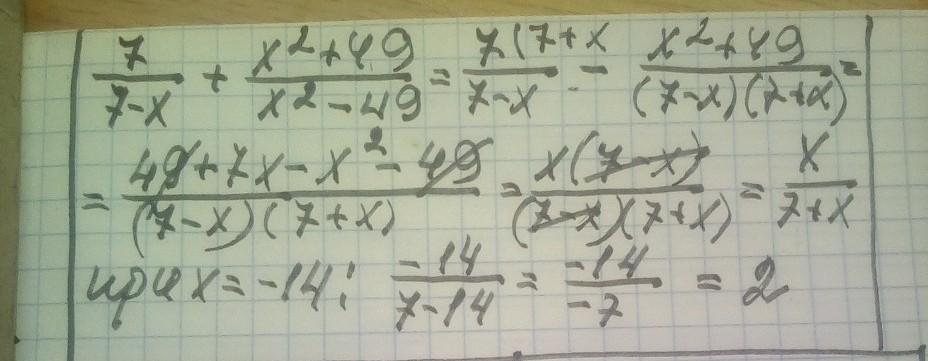 7/(7-x) + (x²+49)/(x²-49) = 7(7+x/(7-x) - (x²+49)/((7-x)(7+x)) =
= (49+7x-x²-49)/((7-x)(7+x)) = x(7-x)/((7-x)(7+x)) = x/(7+x)
при x=-14: -14/(7-14) = -14/-7 = 2